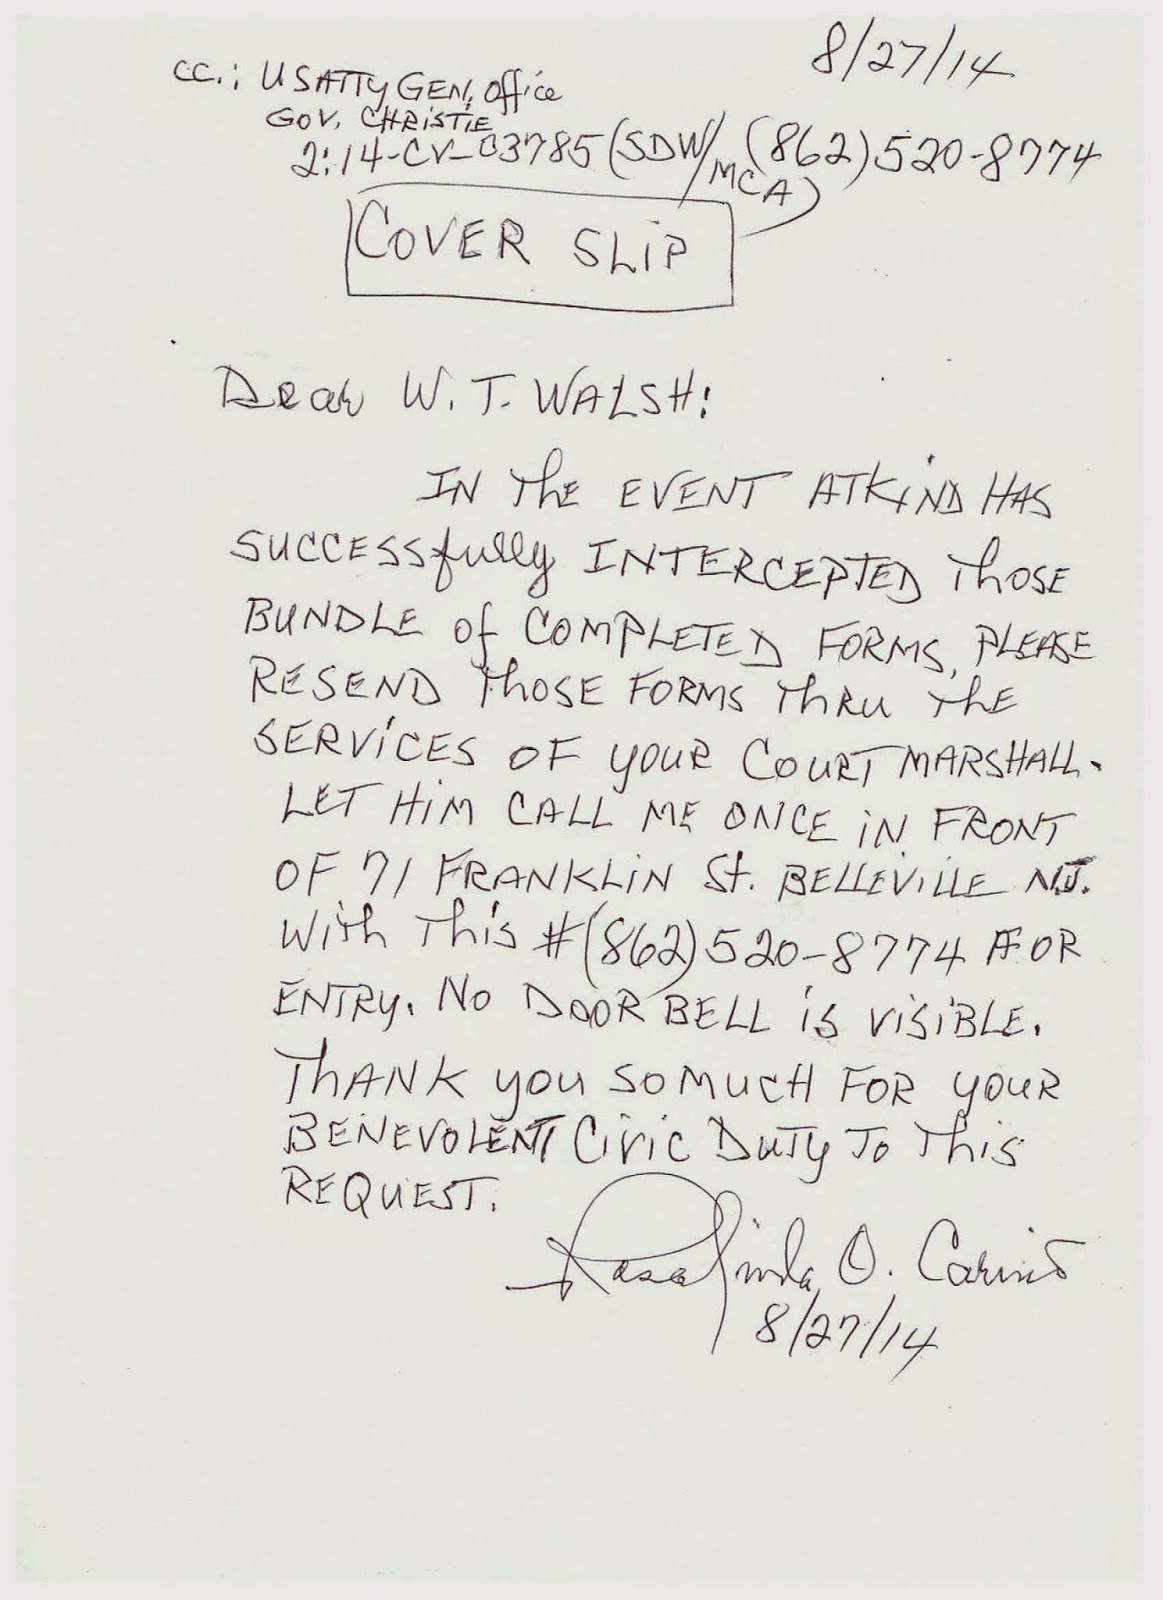 8/27/14
cc.: US ATTY GEN. Office
GOV. CHRISTIE
2:14-CV-03785 (SDW/MCA) (862) 520-8774
COVER SLIP
Dear W. T. WALSH:
IN The EVENT ATKIND HAS
SUCCESSfully INTERCEPTED Those
BUNDLE of COMPLETED FORMS, PLEASE
RESEND Those FORMS Thru The
SERVICES OF your COURT MARSHALL.
LET HIM CALL ME ONCE IN FRONT
OF 71 FRANKLIN St. BELLEVILLE N.J.
With This #(862) 520-8774 FOR
ENTRY. NO DOOR BELL is VISIBLE.
ThANK you SO MUCH FOR YOUR
BENEVOLENT Civic DUTY To This
REQUEST.
Rosalinda O. Cariño
8/27/14